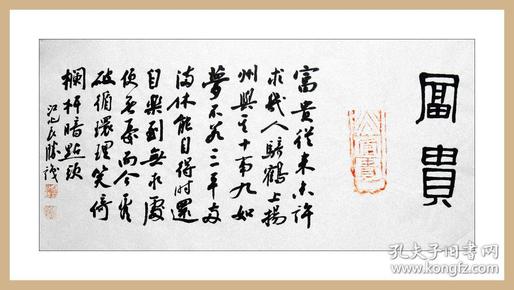 富貴
富貴從來未許
求幾人騎鶴上揚
州與其十事九如
夢不若三平兩
滿休能自得時還
自樂到無求處
便無憂而今看
破循環理笑倚
欄杆暗點頭
孔夫子旧书网
www.kongfz.com